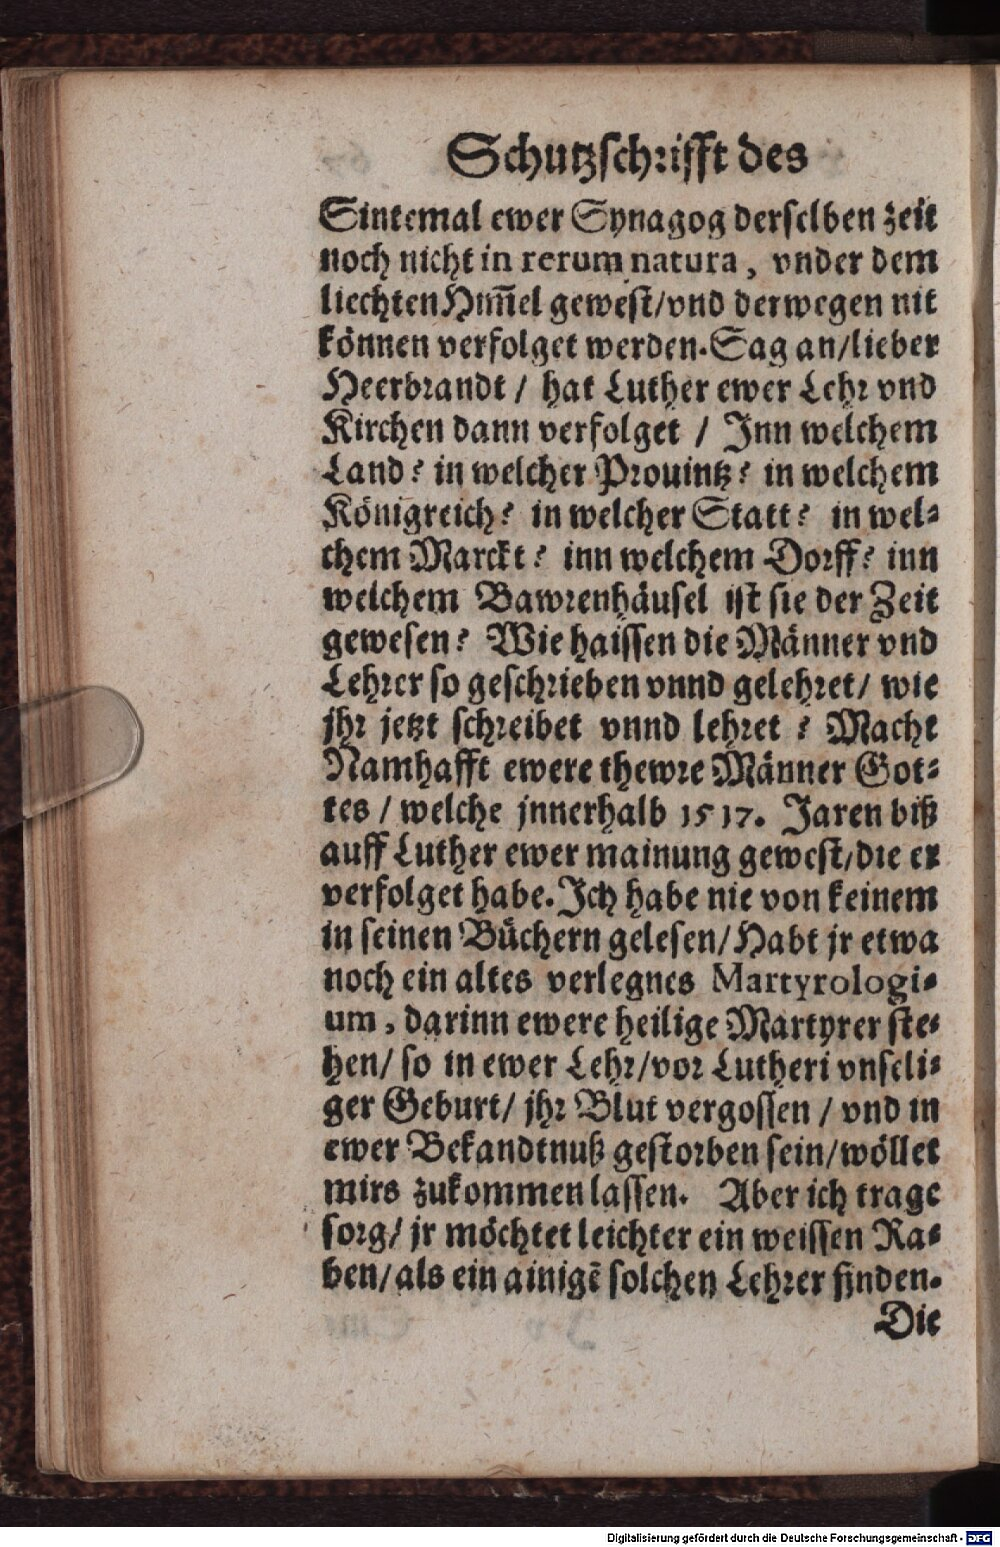 Schutzschrifft des
Sintemal ewer Synagog derselben zeit
noch nicht in rerum natura, vnder dem
liechten Him̃el gewest/vnd derwegen nit
können verfolget werden. Sag an/lieber
Heerbrandt / hat Luther ewer Lehr vnd
Kirchen dann verfolget / Inn welchem
Land? in welcher Prouintz? in welchem
Königreich? in welcher Statt? in wel-
chem Marckt? inn welchem Dorff? inn
welchem Bawrenhäusel ist sie der Zeit
gewesen? Wie haissen die Männer vnd
Lehrer so geschrieben vnnd gelehret/ wie
jhr jetzt schreibet vnnd lehret? Macht
Namhafft ewere thewre Männer Got-
tes / welche jnnerhalb 1517. Jaren biß
auff Luther ewer mainung gewest/die er
verfolget habe. Ich habe nie von keinem
in seinen Büchern gelesen/ Habt jr etwa
noch ein altes verlegnes Martyrologi-
um, darinn ewere heilige Martyrer ste-
hen/ so in ewer Lehr/vor Lutheri vnseli-
ger Geburt/ jhr Blut vergossen / vnd in
ewer Bekandtnuß gestorben sein/wöllet
mirs zukommen lassen. Aber ich trage
sorg/ jr möchtet leichter ein weissen Ra-
ben/als ein ainigẽ solchen Lehrer finden.
Die
Digitalisierung gefördert durch die Deutsche Forschungsgemeinschaft - DFG